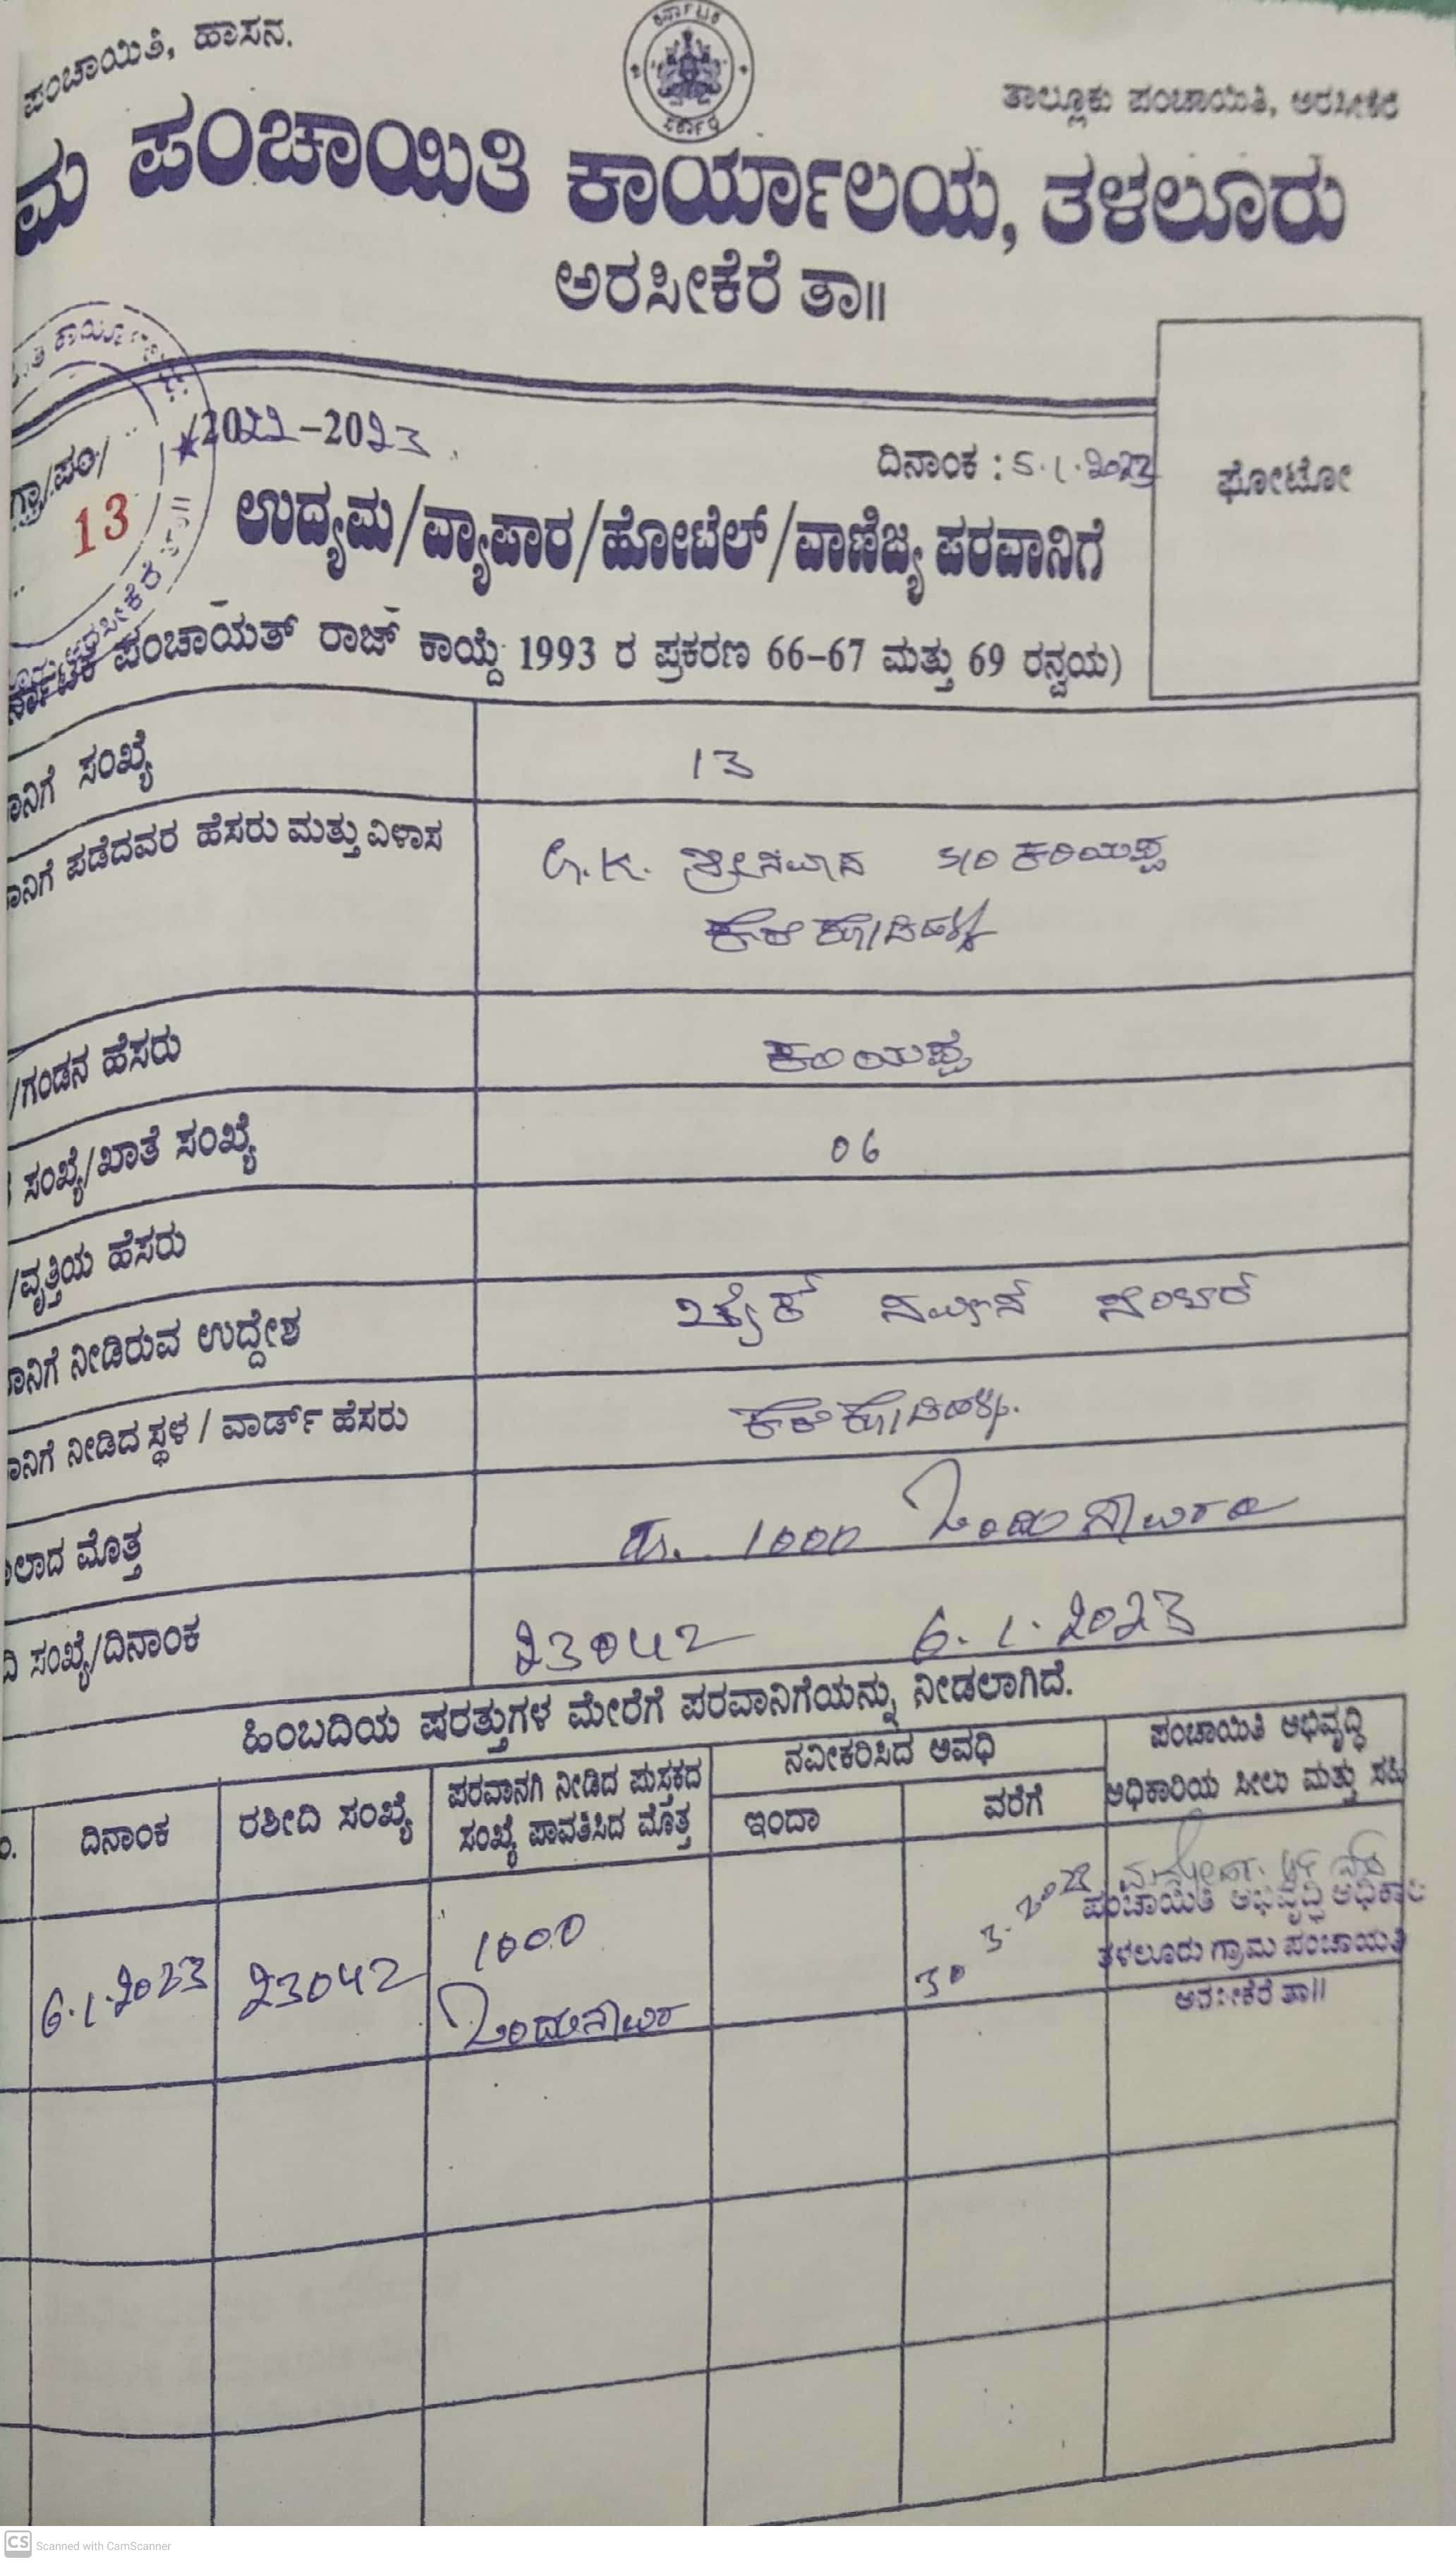 ಪಂಚಾಯಿತಿ, ಹಾಸನ.
ತಾಲ್ಲೂಕು ಪಂಚಾಯಿತಿ, ಅರಸೀಕೆರೆ
ಮ ಪಂಚಾಯಿತಿ ಕಾರ್ಯಾಲಯ, ತಳಲೂರು
ಅರಸೀಕೆರೆ ತಾ||
ಗ್ರಾ/ಪಂ/ 13 /2022-2023
ದಿನಾಂಕ : 5.1.2023
ಫೋಟೋ
ಉದ್ಯಮ/ವ್ಯಾಪಾರ/ಹೋಟೆಲ್/ವಾಣಿಜ್ಯ ಪರವಾನಿಗೆ
ರ್ನಾಟಕ ಪಂಚಾಯತ್ ರಾಜ್ ಕಾಯ್ದೆ 1993 ರ ಪ್ರಕರಣ 66-67 ಮತ್ತು 69 ರನ್ವಯ)
ಾನಿಗೆ ಸಂಖ್ಯೆ 13
ಾನಿಗೆ ಪಡೆದವರ ಹೆಸರು ಮತ್ತು ವಿಳಾಸ G.K. ಶ್ರೀನಿವಾಸ S/O ಕರಿಯಪ್ಪ
/ಗಂಡನ ಹೆಸರು ಕರಿಯಪ್ಪ
ಸಂಖ್ಯೆ/ಖಾತೆ ಸಂಖ್ಯೆ 06
/ವೃತ್ತಿಯ ಹೆಸರು
ಾನಿಗೆ ನೀಡಿರುವ ಉದ್ದೇಶ
ಾನಿಗೆ ನೀಡಿದ ಸ್ಥಳ / ವಾರ್ಡ್ ಹೆಸರು
ಲಾದ ಮೊತ್ತ ರೂ. 1000 ಒಂದು ಸಾವಿರ
ದಿ ಸಂಖ್ಯೆ/ದಿನಾಂಕ 23042 6.1.2023
ಹಿಂಬದಿಯ ಷರತ್ತುಗಳ ಮೇರೆಗೆ ಪರವಾನಿಗೆಯನ್ನು ನೀಡಲಾಗಿದೆ.
ದಿನಾಂಕ
ರಶೀದಿ ಸಂಖ್ಯೆ
ಪರವಾನಗಿ ನೀಡಿದ ಪುಸ್ತಕದ
ಸಂಖ್ಯೆ ಪಾವತಿಸಿದ ಮೊತ್ತ
ನವೀಕರಿಸಿದ ಅವಧಿ
ಇಂದಾ
ವರೆಗೆ
ಪಂಚಾಯಿತಿ ಅಭಿವೃದ್ಧಿ
ಅಧಿಕಾರಿಯ ಸೀಲು ಮತ್ತು ಸಹಿ
6.1.2023
23042
1000
ಒಂದು ಸಾವಿರ
30 3.2023
ಪಂಚಾಯಿತಿ ಅಭಿವೃದ್ಧಿ ಅಧಿಕಾರಿ
ತಳಲೂರು ಗ್ರಾಮ ಪಂಚಾಯತಿ
ಅರಸೀಕೆರೆ ತಾ||
CS Scanned with CamScanner